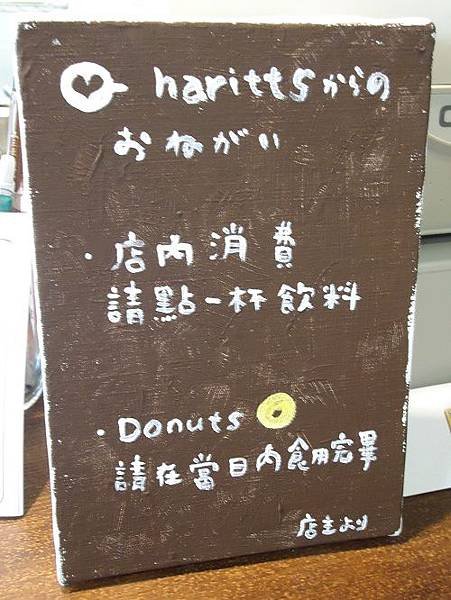 harittsからの
おねがい
・店內消費
請點一杯飲料
・Donuts
請在當日內食用完畢
店主より